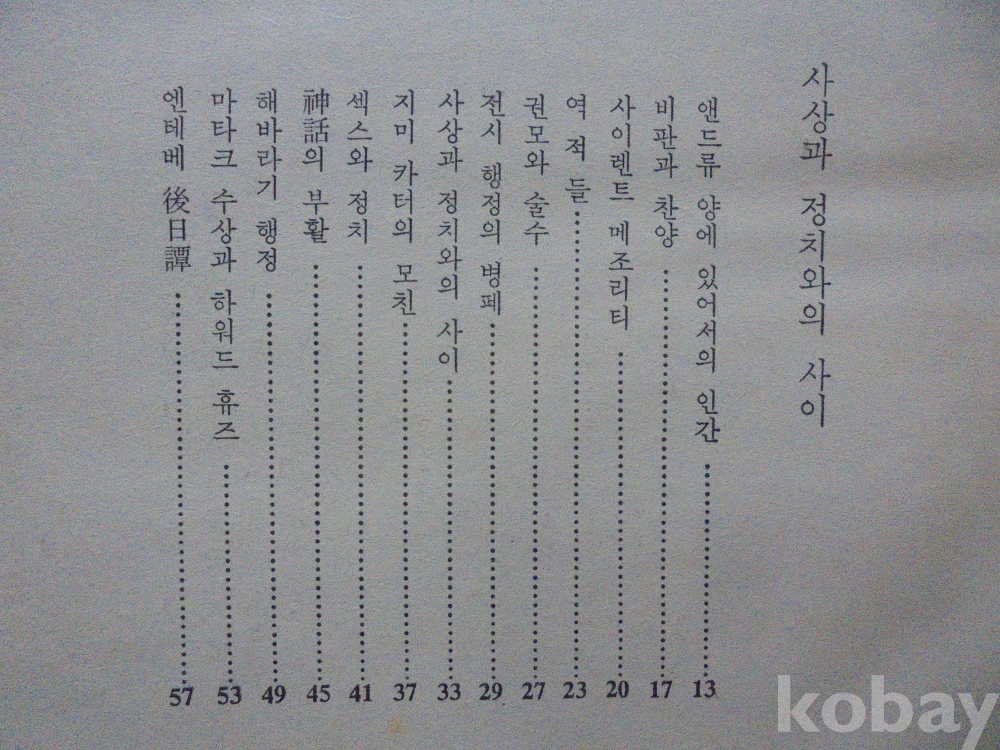 사상과 정치와의 사이
앤드류 양에 있어서의 인간 13
비판과 찬양 17
사이렌트 메조리티 20
역 적 들 23
권모와 술수 27
전시 행정의 병폐 29
사상과 정치와의 사이 33
지미 카터의 모친 37
섹스와 정치 41
神話의 부활 45
해바라기 행정 49
마타크 수상과 하워드 휴즈 53
엔테베 後日譚 57
kobay